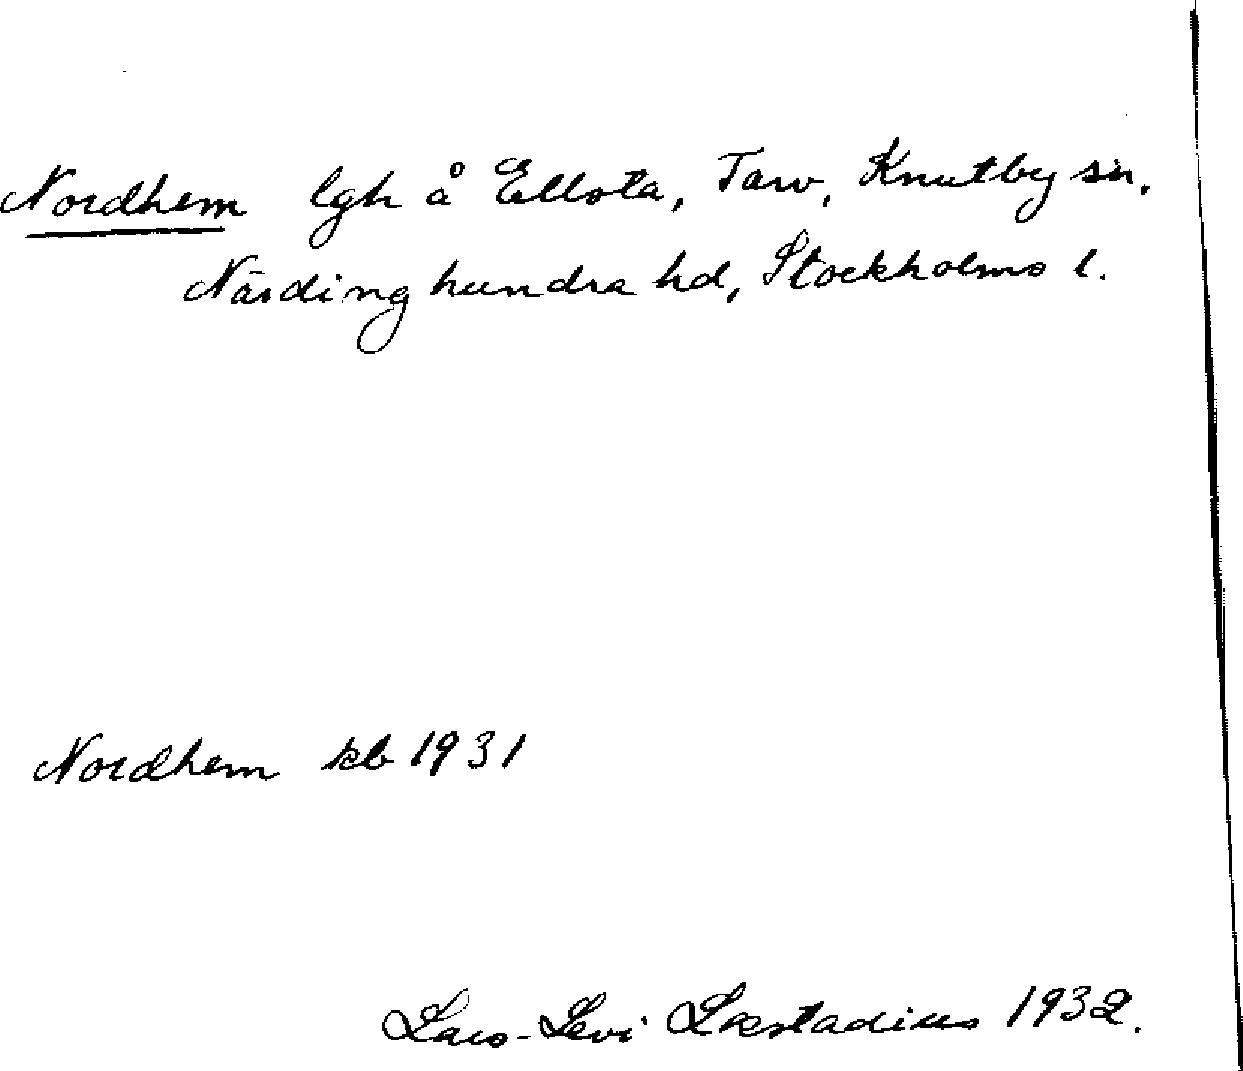 Nordhem lgh å Ellsta, Tarv, Knutby sn,
Närdinghundra hd, Stockholms l.
Nordhem kb 1931
Lars-Levi Læstadius 1932.